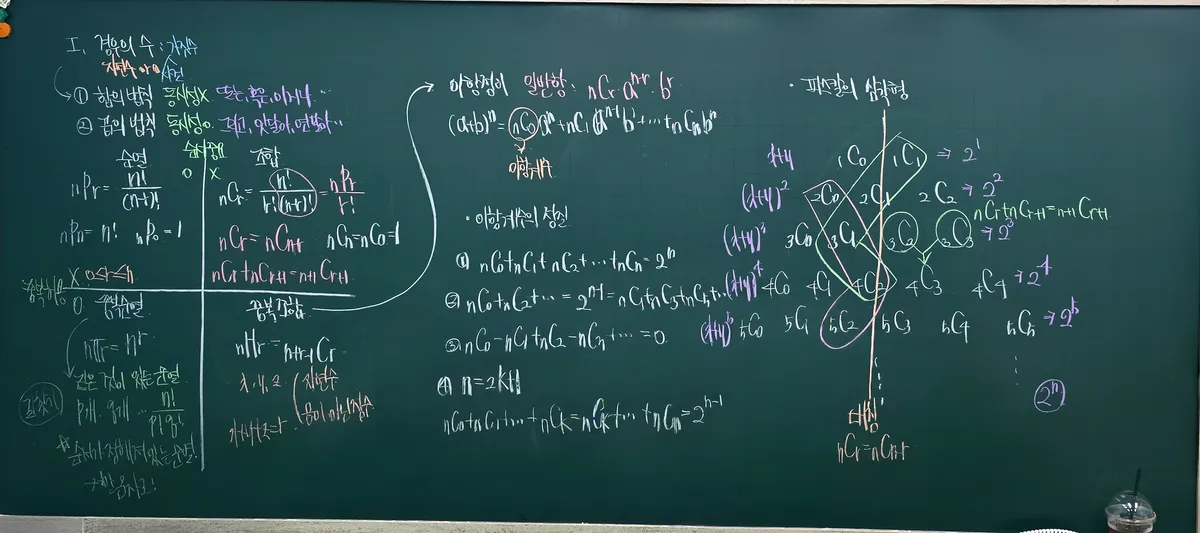 I. 경우의 수 : 가짓수
자연수 or 0 사건
① 합의 법칙 동시성X. 또는, 혹은, 이거나…
② 곱의 법칙 동시성O. 그리고, 잇달아, 연달아…
순서중요
순열 O X 조합
nPr = n!/(n-r)!
nCr = n!/r!(n-r)! = nPr/r!
nPn = n! nP0 = 1
nCr = nCn-r nCn = nC0 = 1
중복허용 X 0≤r≤n
nCr + nCr+1 = n+1Cr+1
O 중복순열
중복조합
nΠr = n^r
nHr = n+r-1Cr
같은 것이 있는 순열
p개, q개 … n!/p!q!…
x, y, z 자연수
음이 아닌 정수
※ 순서가 정해져 있는 순열!
이항정리 일반항 : nCr·a^n-r·b^r
(a+b)^n = nC0 a^n + nC1 a^n-1 b^1 + … + nCn b^n
이항계수
· 이항계수의 성질
① nC0 + nC1 + nC2 + … + nCn = 2^n
② nC0 + nC2 + … = 2^n-1 = nC1 + nC3 + nC5 + …
③ nC0 - nC1 + nC2 - nC3 + … = 0
④ n = 2k+1
nC0 + nC1 + … + nCk = nCk+1 + … + nCn = 2^n-1
· 파스칼의 삼각형
x+y 1C0 1C1 ⇒ 2^1
(x+y)^2 2C0 2C1 2C2 → 2^2
nCr + nCr+1 = n+1Cr+1
(x+y)^3 3C0 3C1 3C2 3C3 → 2^3
(x+y)^4 4C0 4C1 4C2 4C3 4C4 → 2^4
(x+y)^5 5C0 5C1 5C2 5C3 5C4 5C5 → 2^5
2^n
대칭
nCr = nCn-r